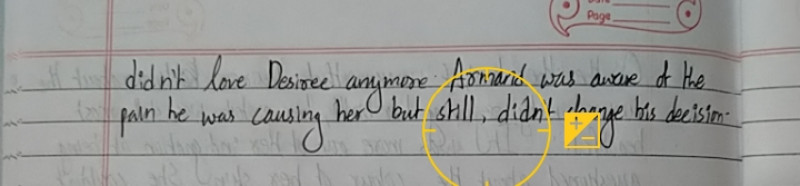 Page
didn't love Desiree anymore. Armand was aware of the
pain he was causing her but still, didn't change his decision.